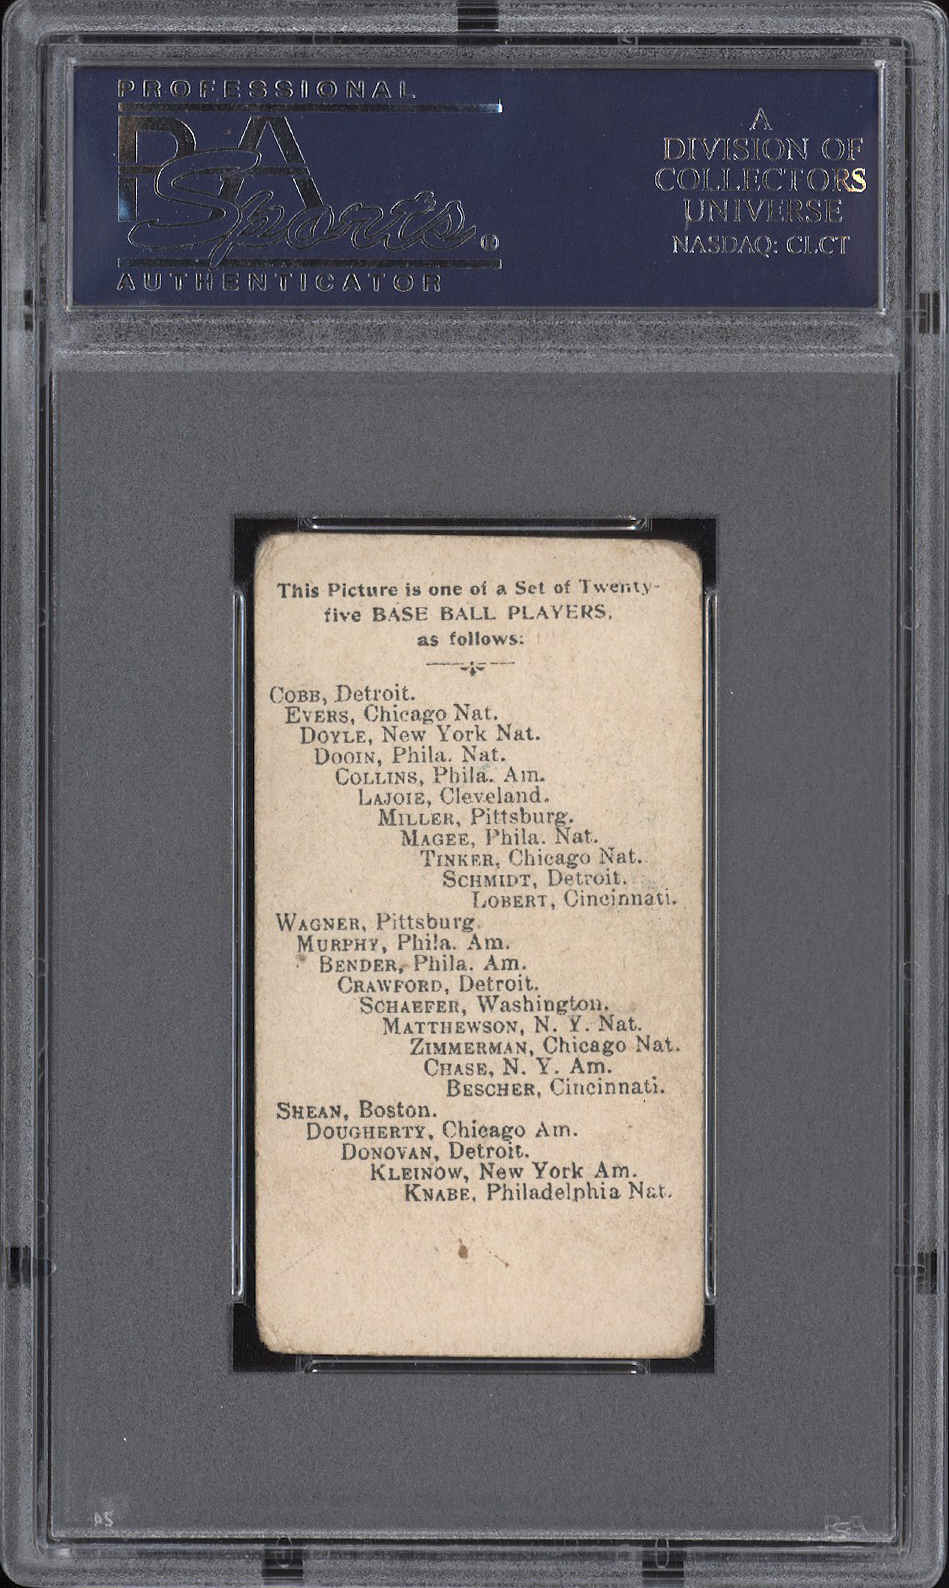 PROFESSIONAL
PSA
Sports®
AUTHENTICATOR
A
DIVISION OF
COLLECTORS
UNIVERSE
NASDAQ: CLCT
This Picture is one of a Set of Twenty-
five BASE BALL PLAYERS,
as follows:
COBB, Detroit.
EVERS, Chicago Nat.
DOYLE, New York Nat.
DOOIN, Phila. Nat.
COLLINS, Phila. Am.
LAJOIE, Cleveland.
MILLER, Pittsburg.
MAGEE, Phila. Nat.
TINKER, Chicago Nat.
SCHMIDT, Detroit.
LOBERT, Cincinnati.
WAGNER, Pittsburg.
MURPHY, Phila. Am.
BENDER, Phila. Am.
CRAWFORD, Detroit.
SCHAEFER, Washington.
MATTHEWSON, N. Y. Nat.
ZIMMERMAN, Chicago Nat.
CHASE, N. Y. Am.
BESCHER, Cincinnati.
SHEAN, Boston.
DOUGHERTY, Chicago Am.
DONOVAN, Detroit.
KLEINOW, New York Am.
KNABE, Philadelphia Nat.
24
PSA